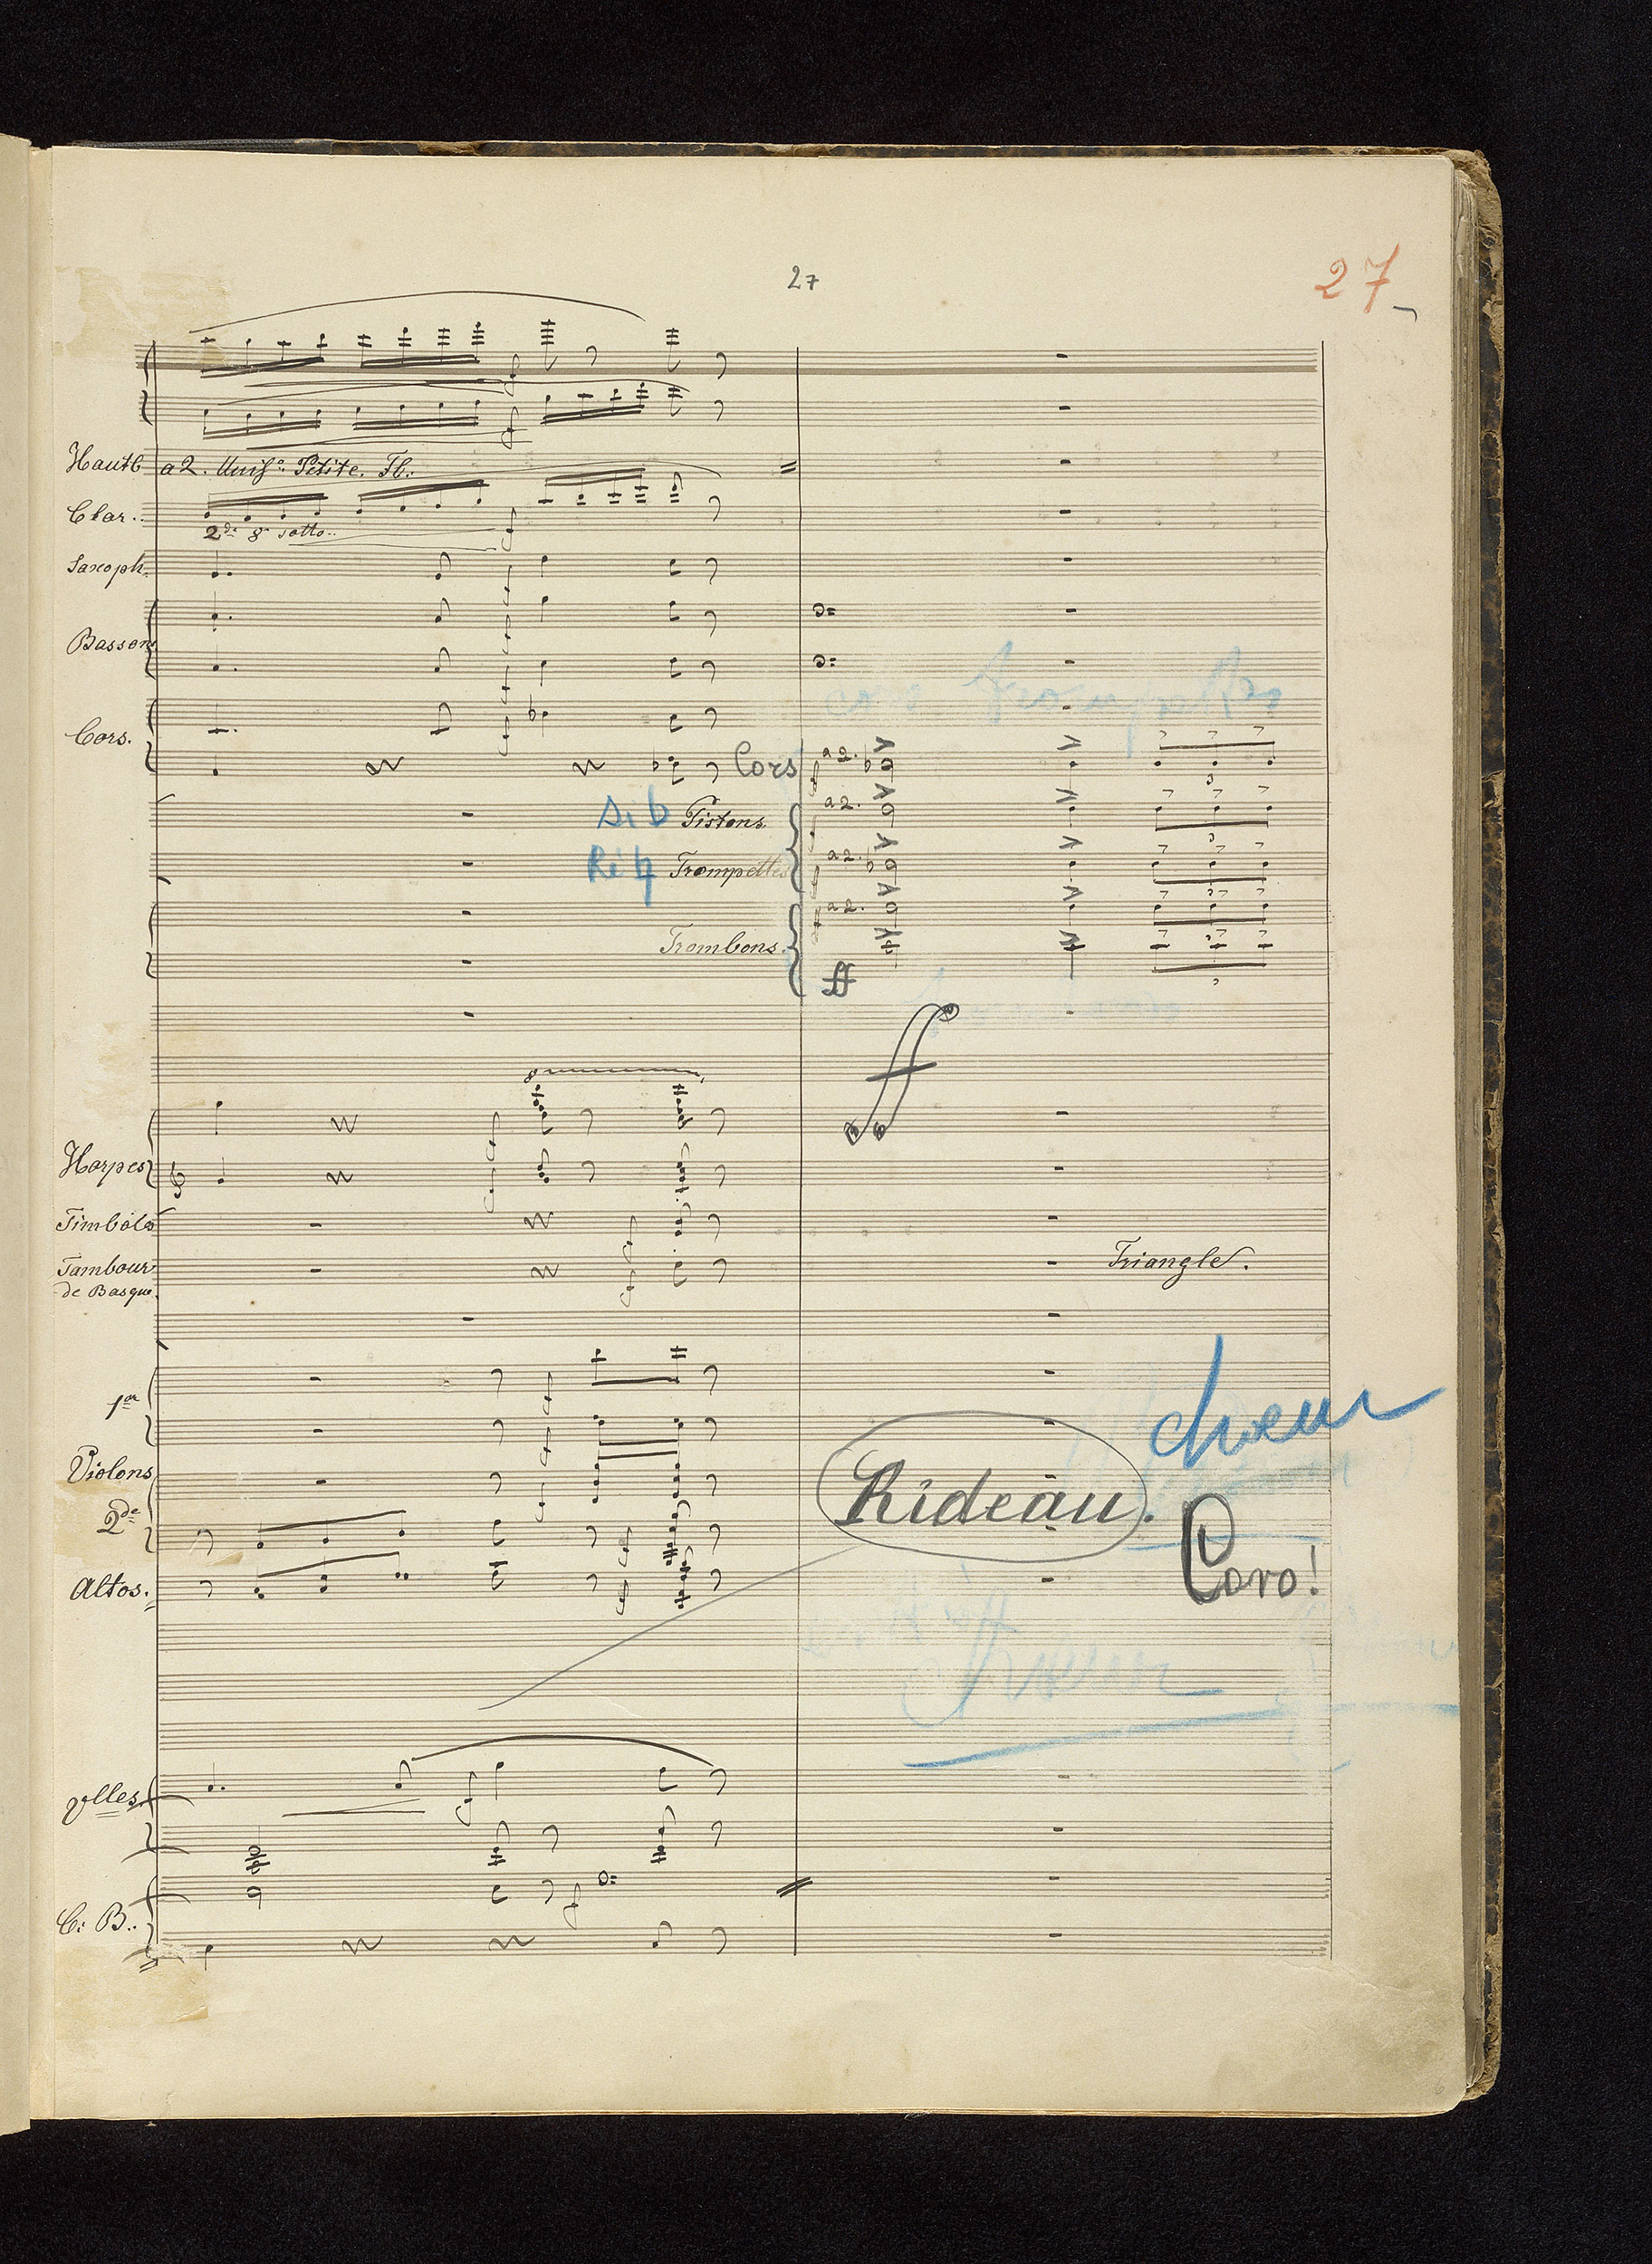 27
27
Hautb a2. Unisº: Petite. Fl.
Clar..
2de 8a sotto..
Saxoph.
Bassons
Cors.
Cors a2.
Si b Pistons. a2.
Ré ♮ Trompettes a2.
a2.
Trombons.
ff
ff
8
Harpes
Timbales
Tambour
de Basque.
Triangle.
1er
chœur
Violons
Rideau.
2de
Coro!
Altos.
Vlles.
C: B..